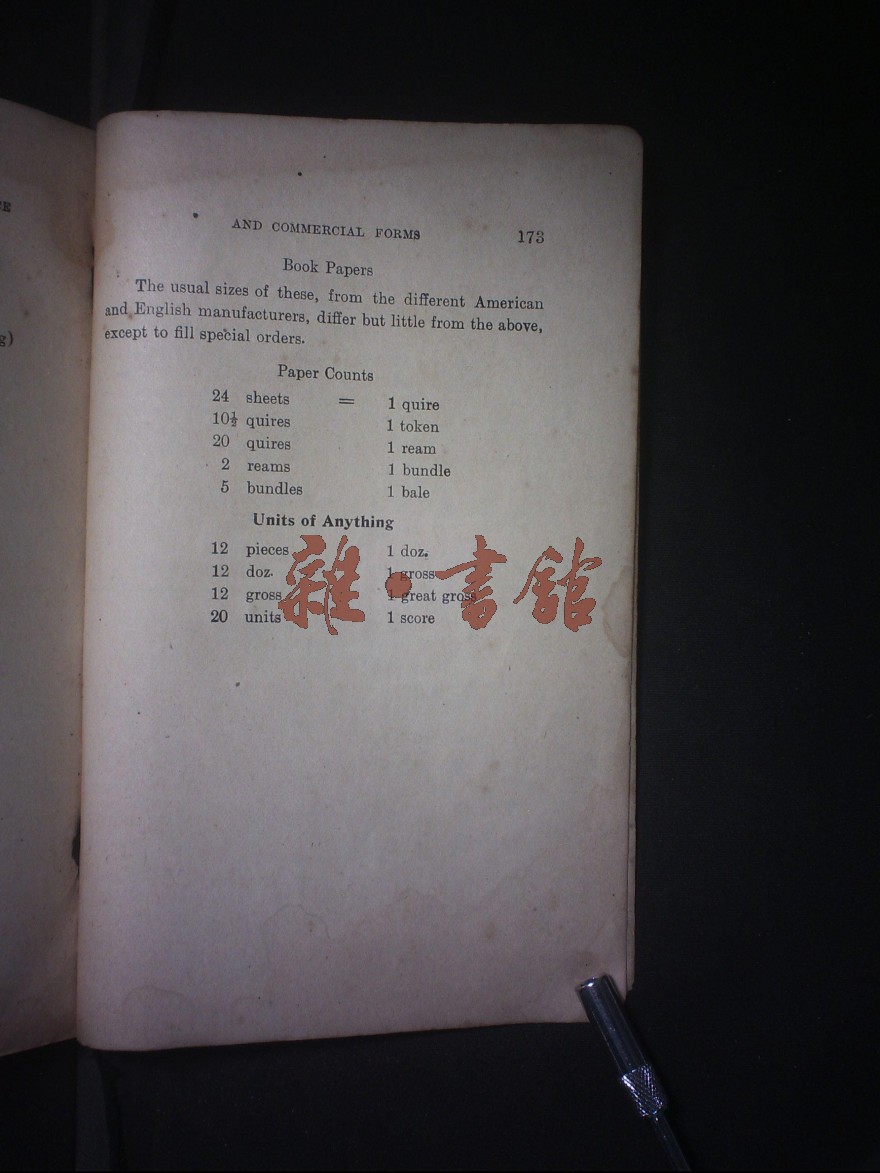 AND COMMERCIAL FORMS 173
Book Papers
The usual sizes of these, from the different American
and English manufacturers, differ but little from the above,
except to fill special orders.
Paper Counts
24 sheets = 1 quire
10½ quires 1 token
20 quires 1 ream
2 reams 1 bundle
5 bundles 1 bale
Units of Anything
12 pieces 1 doz.
12 doz. 1 gross
12 gross 1 great gross
20 units 1 score
雜·書館
g)